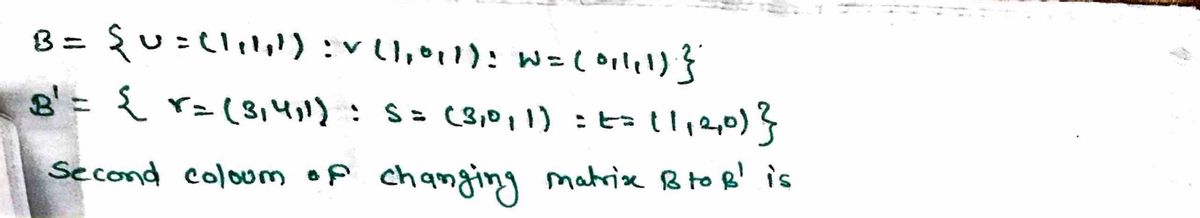 B = { U = (1,1,1) : v (1,0,1) : w = (0,1,1) }
B' = { r = (3,4,1) : s = (3,0,1) : t = (1,2,0) }
Second coloum of changing matrix B to B' is